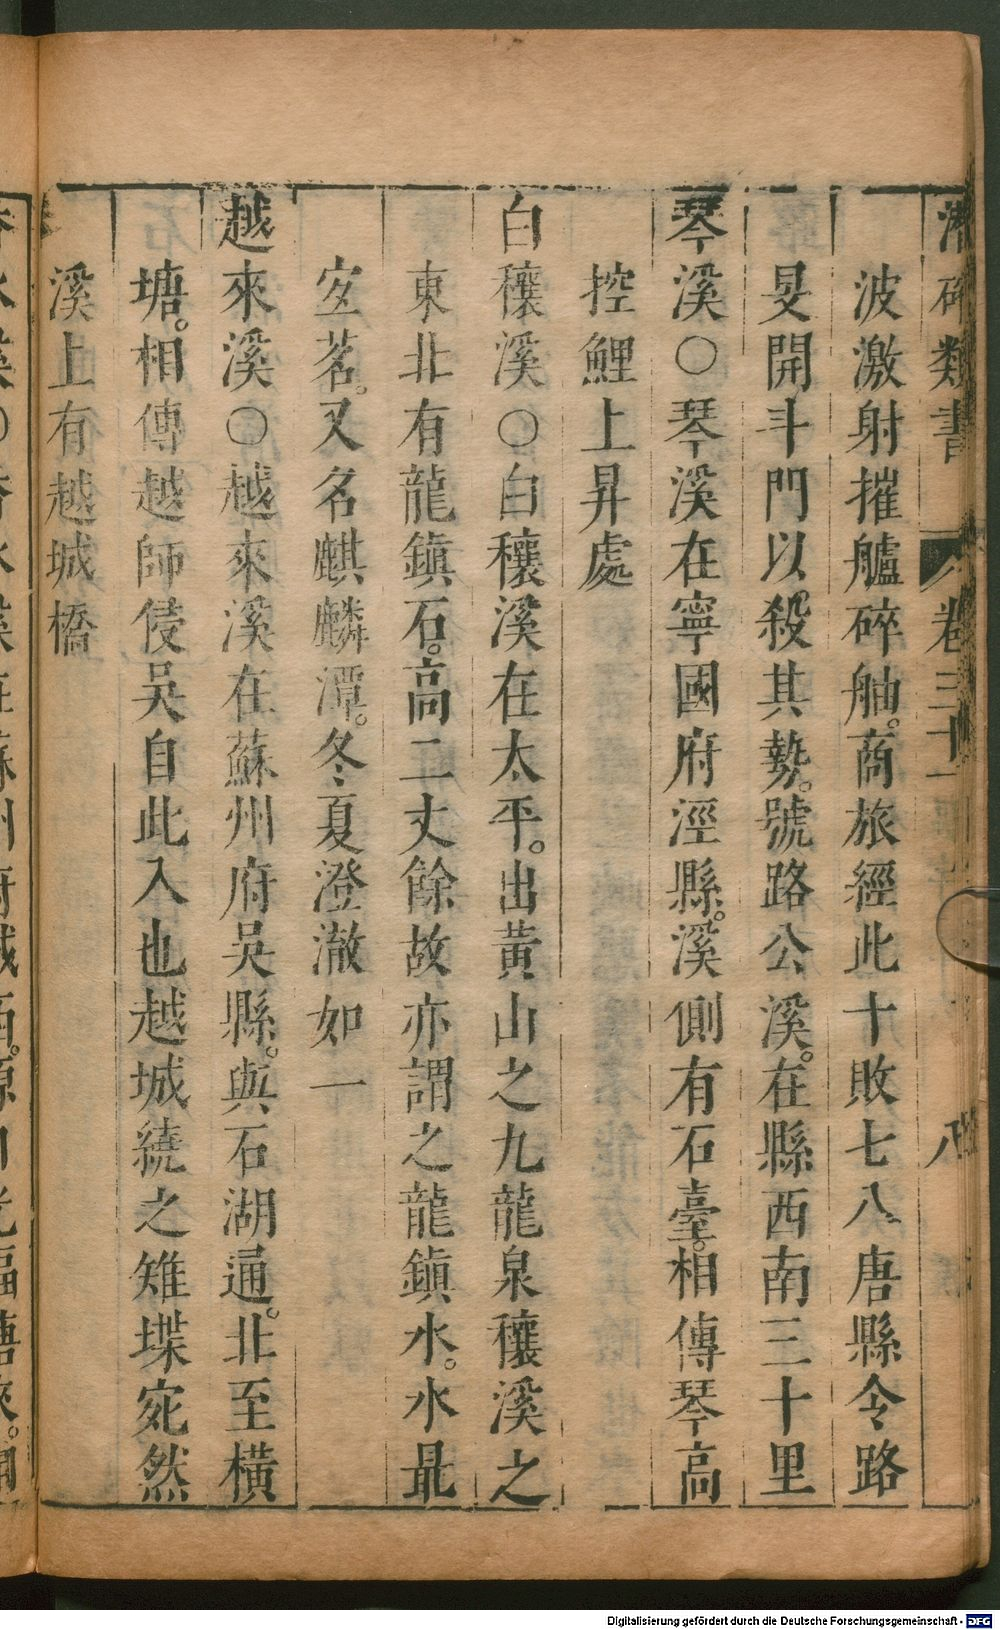 潛確類書 卷三十一 八
波激射摧艫碎舳。商旅經此十敗七八唐縣令路
旻開斗門以殺其勢。號路公溪。在縣西南三十里
琴溪〇琴溪在寧國府涇縣。溪側有石臺。相傳琴高
控鯉上昇處
白穰溪〇白穰溪在太平。出黃山之九龍泉穰溪之
東北有龍鎮石。高二丈餘故亦謂之龍鎮水。水最
宜茗。又名麒麟潭。冬夏澄澈如一
越來溪〇越來溪在蘇州府吳縣。與石湖通。北至橫
塘。相傳越師侵吳自此入也越城繞之雉堞宛然
溪上有越城橋
Digitalisierung gefördert durch die Deutsche Forschungsgemeinschaft - DFG